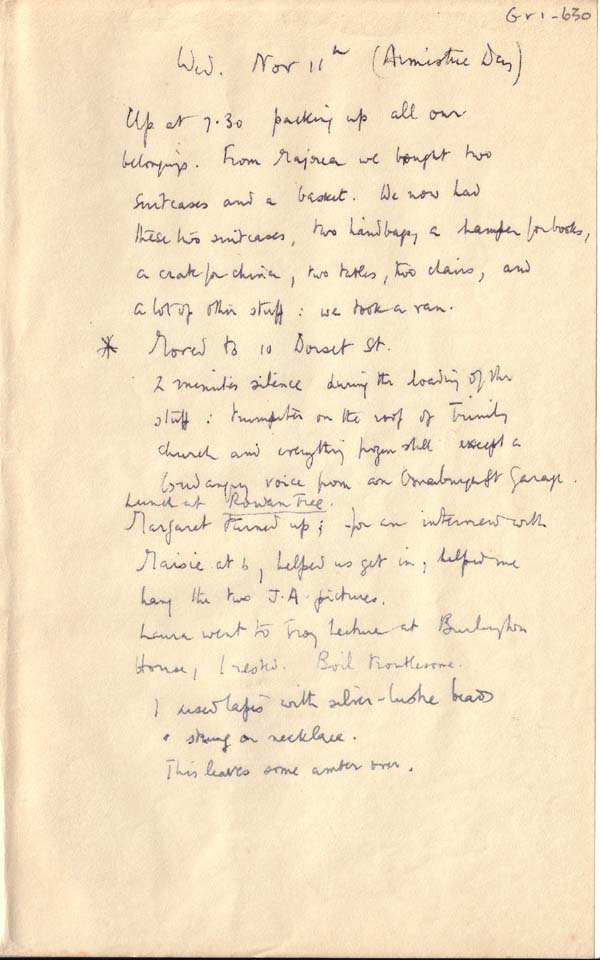 Gr1-630
Wed. Nov 11th (Armistice Day)
Up at 7.30 packing up all our
belongings. From Majorca we bought two
suitcases and a basket. We now had
these two suitcases, two handbags, a hamper for books,
a crate for china, two tables, two chairs, and
a lot of other stuff: we took a van.
* Moved to 10 Dorset St.
2 minutes silence during the loading of the
stuff: trumpeter on the roof of Trinity
church and everything frozen still except a
loud angry voice from an Osnaburgh St Garage.
Lunch at Rowan Tree.
Margaret turned up; for an interview with
Maisie at 6, helped us get in; helped me
hang the two J.A. pictures.
Laura went to Troy Lecture at Burlington
House, I rested. Boil troublesome.
I used lapis with silver-lustre beads
strung on necklace.
This leaves some amber over.